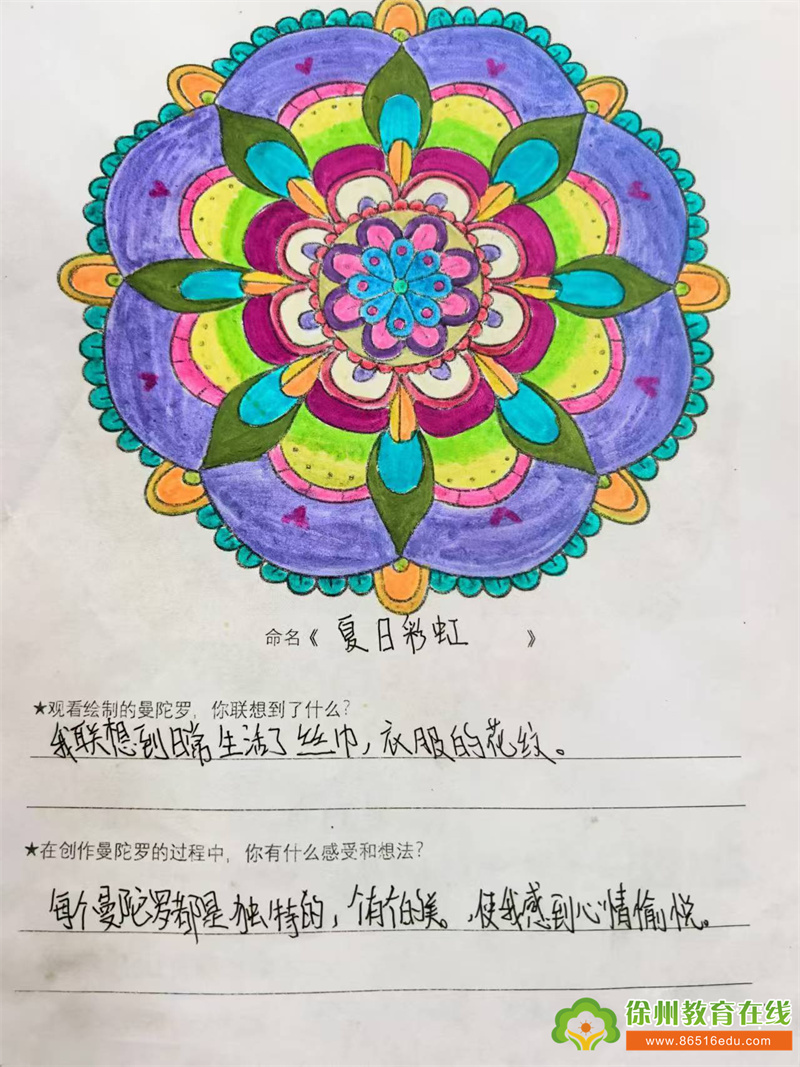 命名《 夏日彩虹 》
★观看绘制的曼陀罗,你联想到了什么?
我联想到日常生活了丝巾,衣服的花纹。
★在创作曼陀罗的过程中,你有什么感受和想法?
每个曼陀罗都是独特的,个有个的美。,使我感到心情愉悦。
徐州教育在线
www.86516edu.com